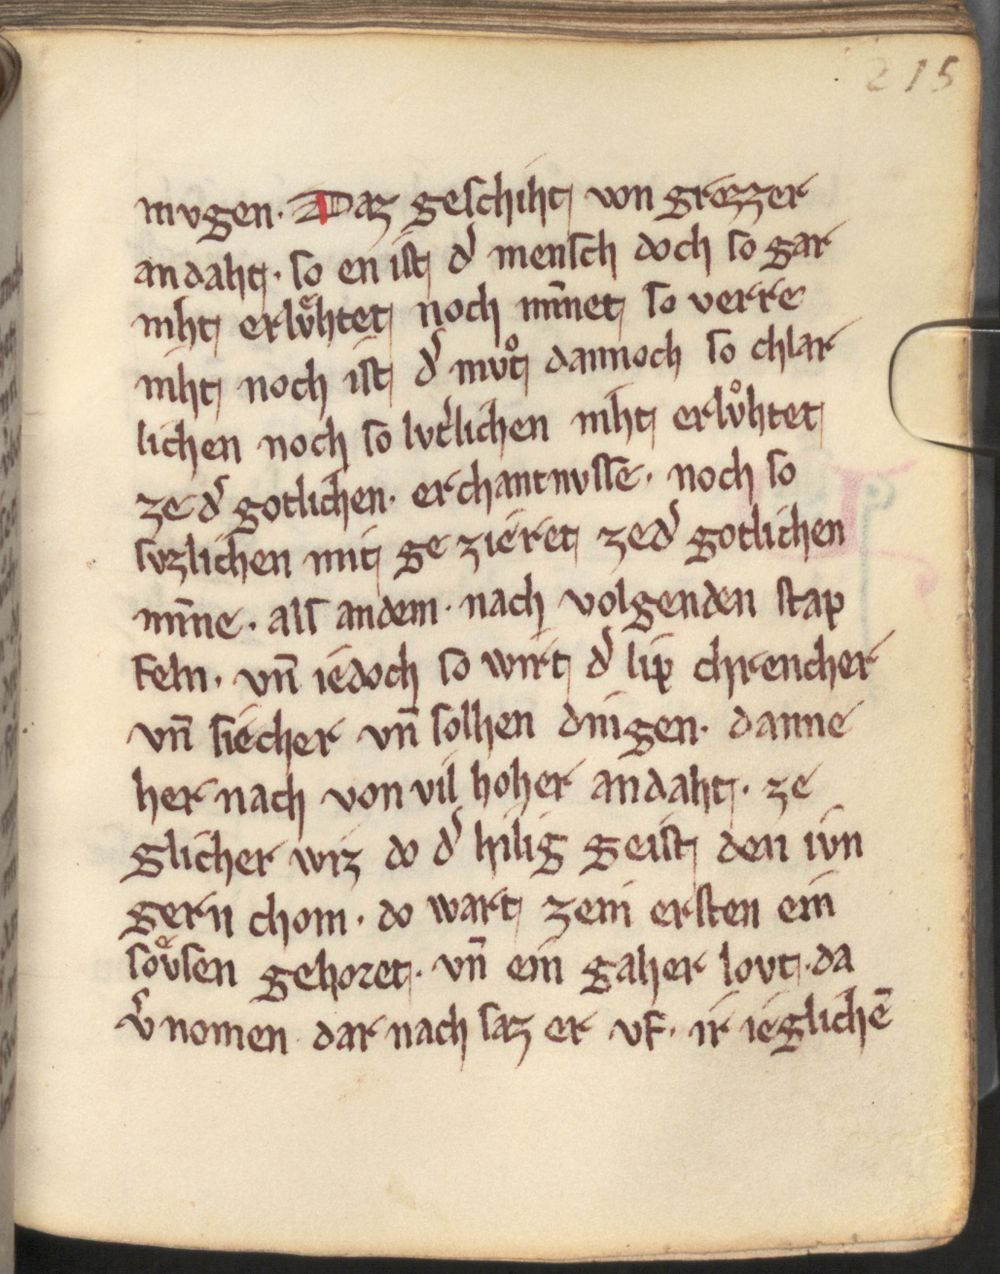 215
mvgen. Daz geschiht von grozzer
andaht. so en ist d̓ mensch doch so gar
niht erlvͤhtet noch minnet so verre
niht noch ist d̓ mvͦt dannoch so chlar
lichen noch so lvt̓lichen niht erlvͦhtet
ze d̓ gotlichen. erchantnvsse. noch so
svzlichen mit ge zieret ze d̓ gotlichen
mīne. als andem. nach volgenden stap
feln. vn̄ iedoch so wirt d̓ lip chrencher
vn̄ siecher vn̄ solhen dingen. danne
her nach von vil hoher andaht. ze
glicher wiz do d̓ hilig geist den ivn
gern chom. do wart zem ersten ein
soͤvsen gehoret. vn̄ ein gaher lovt. da
v̓nomen dar nach saz er vf. ir ieglichē